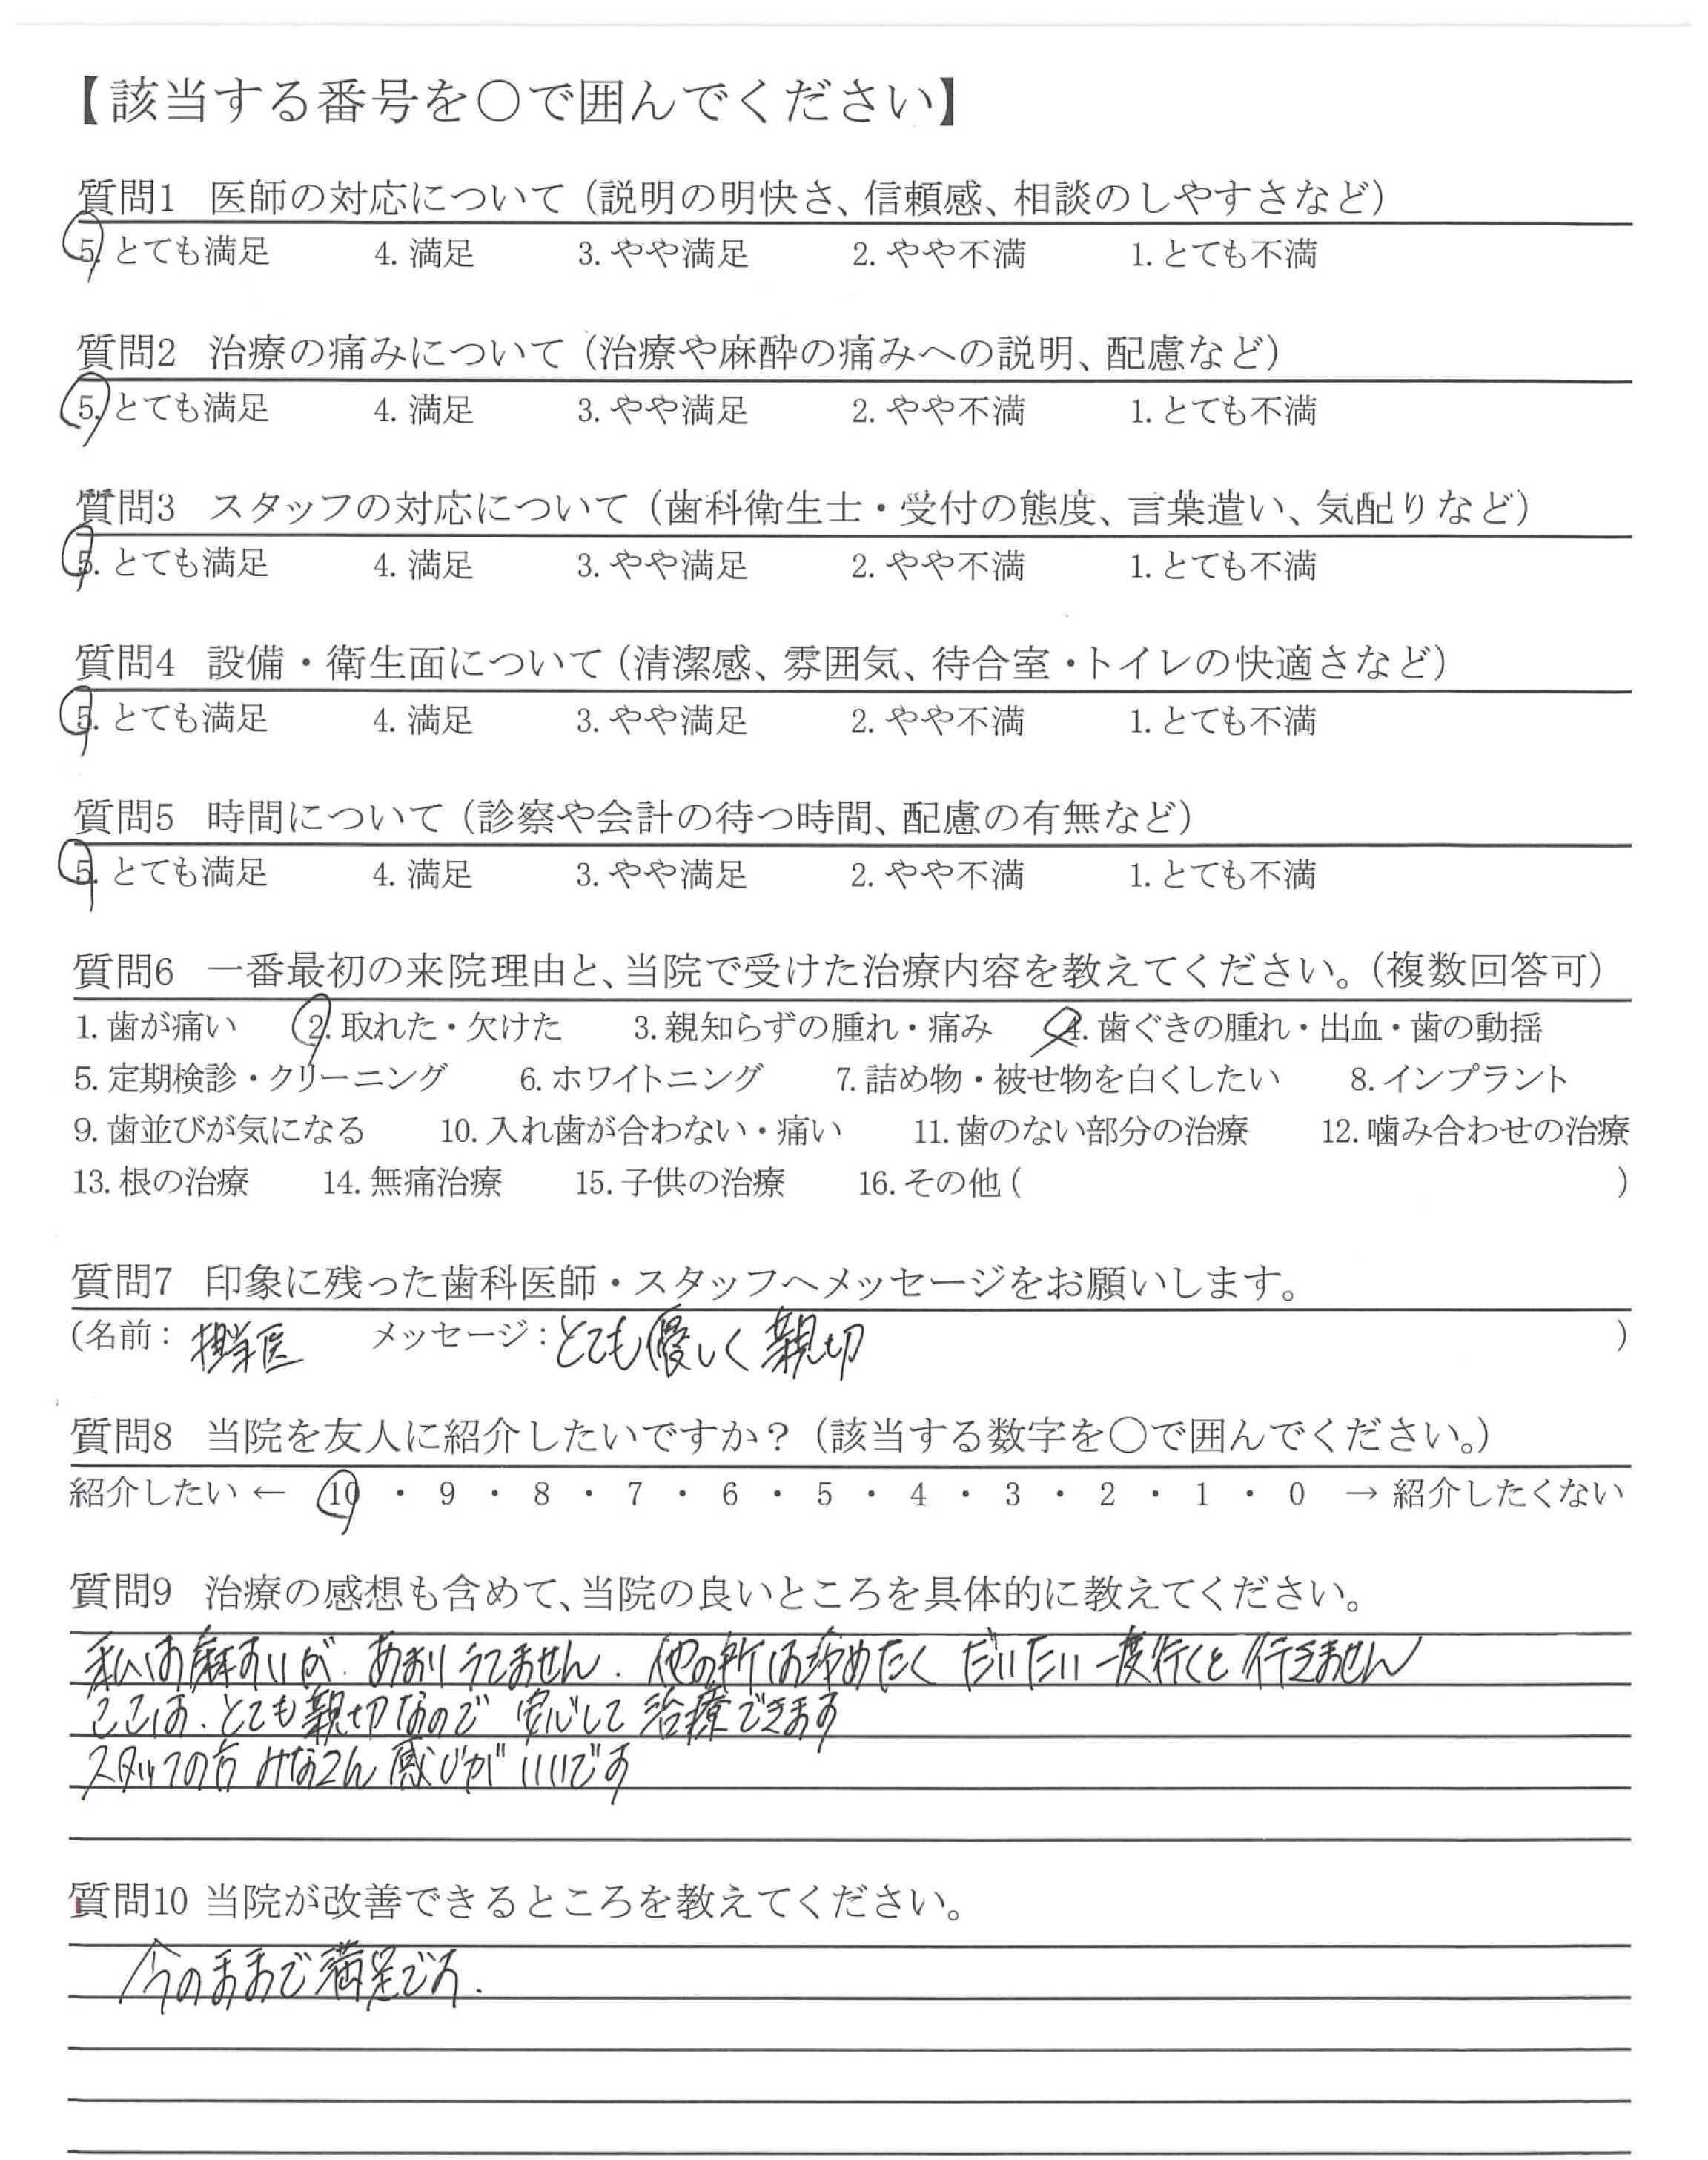 【該当する番号を〇で囲んでください】
質問1 医師の対応について（説明の明快さ、信頼感、相談のしやすさなど）
5. とても満足 4. 満足 3. やや満足 2. やや不満 1. とても不満
質問2 治療の痛みについて（治療や麻酔の痛みへの説明、配慮など）
5. とても満足 4. 満足 3. やや満足 2. やや不満 1. とても不満
質問3 スタッフの対応について（歯科衛生士・受付の態度、言葉遣い、気配りなど）
5. とても満足 4. 満足 3. やや満足 2. やや不満 1. とても不満
質問4 設備・衛生面について（清潔感、雰囲気、待合室・トイレの快適さなど）
5. とても満足 4. 満足 3. やや満足 2. やや不満 1. とても不満
質問5 時間について（診察や会計の待つ時間、配慮の有無など）
5. とても満足 4. 満足 3. やや満足 2. やや不満 1. とても不満
質問6 一番最初の来院理由と、当院で受けた治療内容を教えてください。（複数回答可）
1. 歯が痛い 2. 取れた・欠けた 3. 親知らずの腫れ・痛み 4. 歯ぐきの腫れ・出血・歯の動揺
5. 定期検診・クリーニング 6. ホワイトニング 7. 詰め物・被せ物を白くしたい 8. インプラント
9. 歯並びが気になる 10. 入れ歯が合わない・痛い 11. 歯のない部分の治療 12. 噛み合わせの治療
13. 根の治療 14. 無痛治療 15. 子供の治療 16. その他 ( )
質問7 印象に残った歯科医師・スタッフへメッセージをお願いします。
(名前： 担当医 メッセージ：とても優しく親切 )
質問8 当院を友人に紹介したいですか？（該当する数字を〇で囲んでください。）
紹介したい ← 10 ・ 9 ・ 8 ・ 7 ・ 6 ・ 5 ・ 4 ・ 3 ・ 2 ・ 1 ・ 0 → 紹介したくない
質問9 治療の感想も含めて、当院の良いところを具体的に教えてください。
私は麻すいが、あまりうてません. 他の所は たく だいたい一度行くと行きません
ここは、とても親切なので 安心して 治療できます
スタッフの方 みなさん 感じがいいです
質問10 当院が改善できるところを教えてください。
今のままで満足です.